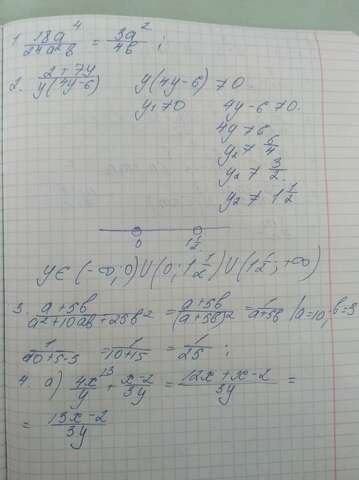 1. 18a⁴/24a²b = 3a²/4b ;
2. 2+7y/y(4y-6) y(4y-6) ≠ 0.
y₁ ≠ 0 4y-6 ≠ 0.
4y ≠ 6
y₂ ≠ 6/4
y₂ ≠ 3/2.
y₂ ≠ 1 1/2
0 1 1/2
y∈(-∞;0)∪(0; 1 1/2)∪(1 1/2; +∞)
3. a+5b/a²+10ab+25b² = a+5b/(a+5b)² = 1/a+5b /a=10, b=3
1/10+5·3 = 1/10+15 = 1/25 ;
4. а) 4x/y ⁽³ + x-2/3y = 12x+x-2/3y =
= 13x-2/3y